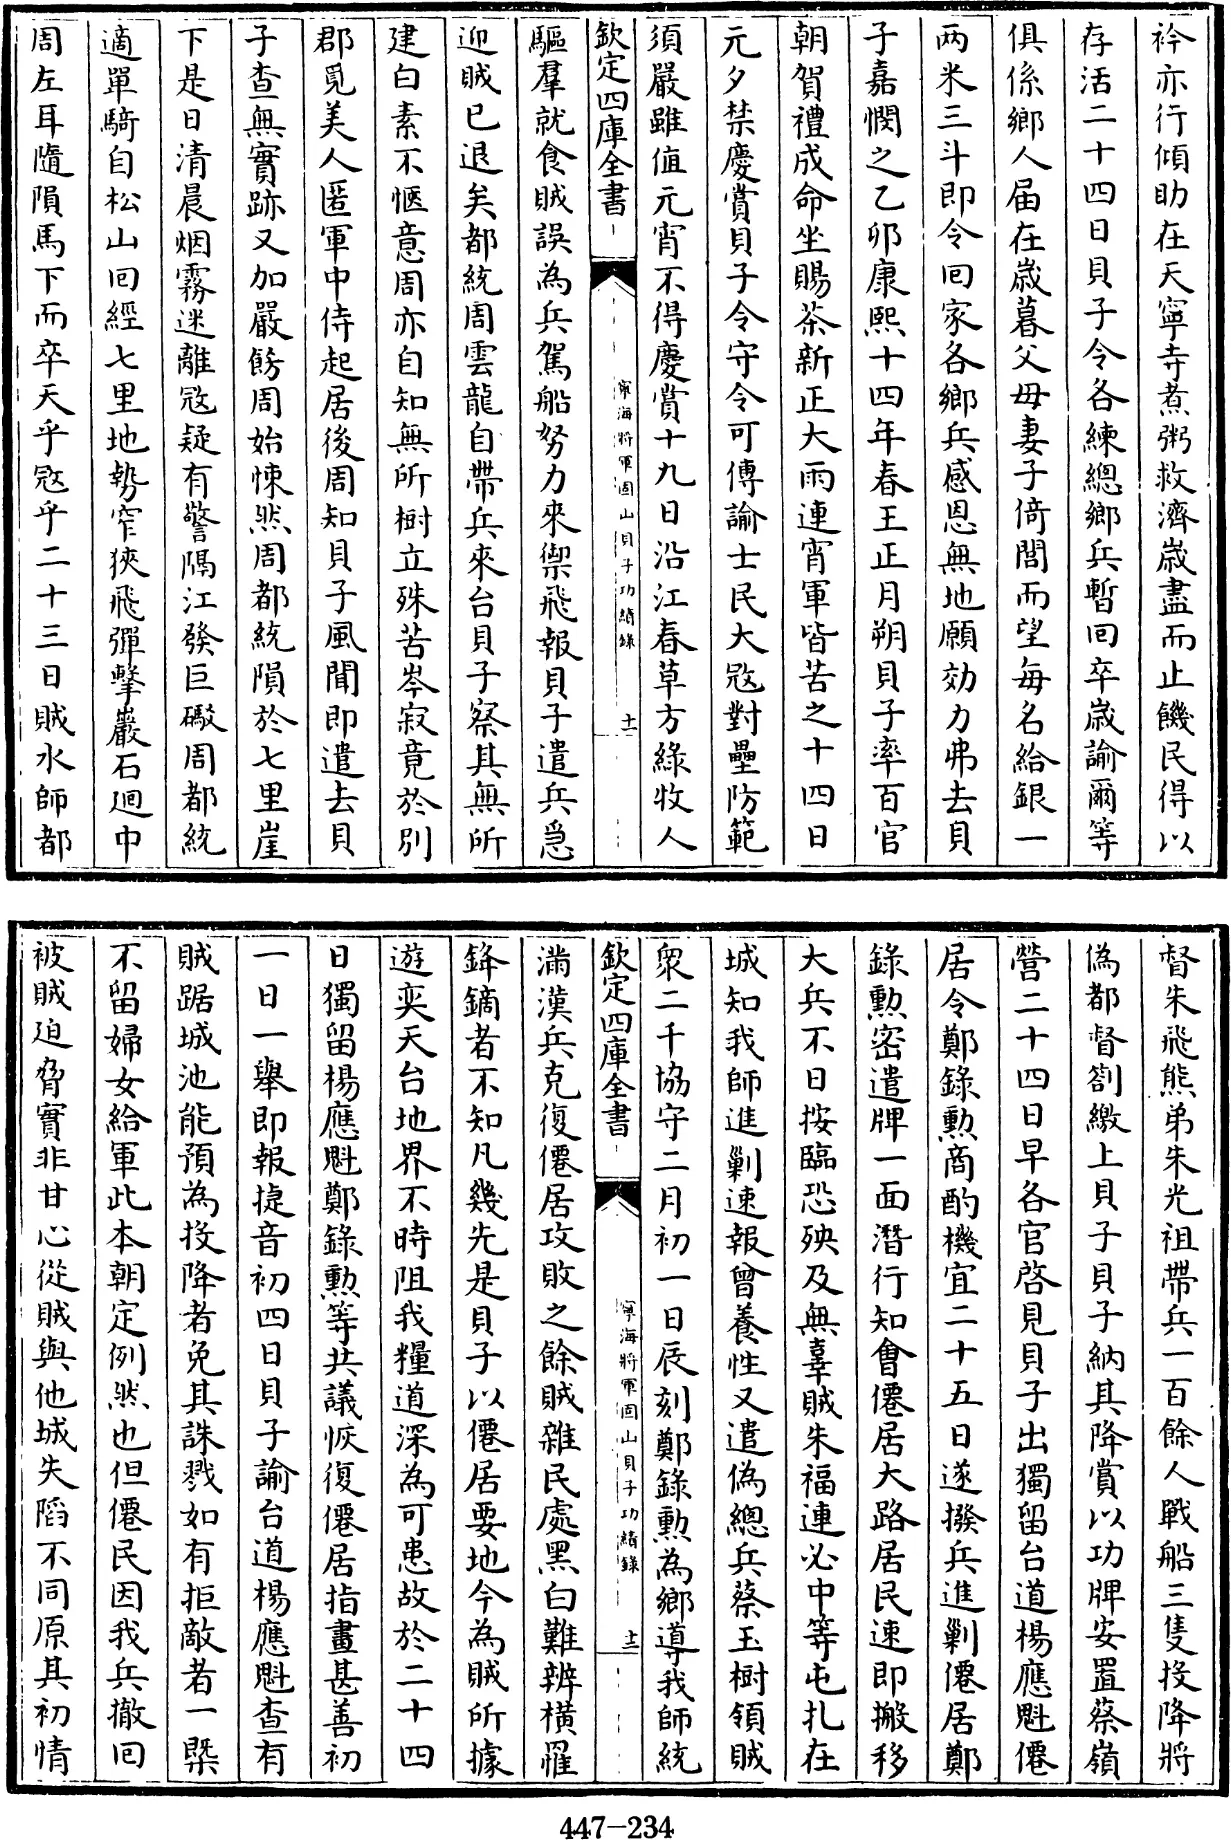 衿亦行傾助在天寧寺煮粥救濟嵗盡而止饑民得以
存活二十四日貝子令各練總鄉兵暫囘卒嵗諭爾等
俱係鄉人届在嵗暮父母妻子倚閭而望每名給銀一
两米三斗即令囘家各鄉兵感恩無地願効力弗去貝
子嘉憫之乙卯康熙十四年春王正月朔貝子率百官
朝賀禮成命坐賜茶新正大雨連宵軍皆苦之十四日
元夕禁慶賞貝子令守令可傳諭士民大冦對壘防範
須嚴雖值元宵不得慶賞十九日沿江春草方綠牧人
欽定四庫全書
寧海將軍固山貝子功績錄
十一
驅羣就食賊誤為兵駕船努力來禦飛報貝子遣兵急
迎賊已退矣都統周雲龍自帶兵來台貝子察其無所
建白素不愜意周亦自知無所樹立殊苦岑寂竟於别
郡覓美人匿軍中侍起居後周知貝子風聞即遣去貝
子查無實跡又加嚴飭周始悚然周都統隕於七里崖
下是日清晨烟霧迷離冦疑有警隔江發巨礟周都統
適單騎自松山囘經七里地勢窄狹飛彈擊巖石廻中
周左耳隨隕馬下而卒天乎冦乎二十三日賊水師都
督朱飛熊弟朱光祖帶兵一百餘人戰船三隻投降將
偽都督劄繳上貝子貝子納其降賞以功牌安置蔡嶺
營二十四日早各官啓見貝子出獨留台道楊應魁僊
居令鄭錄勲商酌機宜二十五日遂撥兵進剿僊居鄭
錄勲密遣牌一面潛行知會僊居大路居民速即搬移
大兵不日按臨恐殃及無辜賊朱福連必中等屯扎在
城知我師進剿速報曾養性又遣偽總兵蔡玉樹領賊
衆二千協守二月初一日辰刻鄭錄勲為鄉導我師統
欽定四庫全書
寧海將軍固山貝子功績錄
十二
滿漢兵克復僊居攻敗之餘賊雜民處黑白難辨橫罹
鋒鏑者不知凡幾先是貝子以僊居要地今為賊所據
遊奕天台地界不時阻我糧道深為可患故於二十四
日獨留楊應魁鄭錄勲等共議恢復僊居指畫甚善初
一日一舉即報捷音初四日貝子諭台道楊應魁查有
賊踞城池能預為投降者免其誅戮如有拒敵者一槩
不留婦女給軍此本朝定例然也但僊民因我兵撤囘
被賊迫脅實非甘心從賊與他城失䧟不同原其初情
447-234